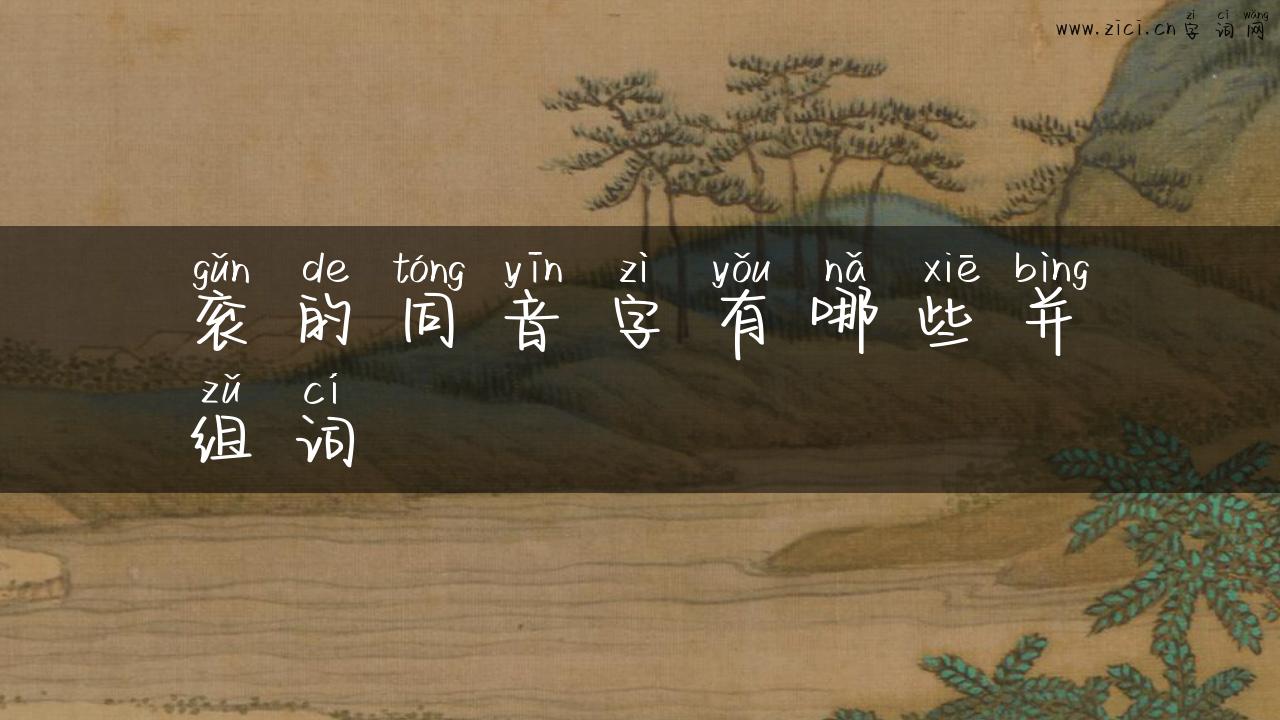 zì cí wǎng
www.zici.cn 字词网
gǔn de tóng yīn zì yǒu nǎ xiē bìng
衮的同音字有哪些并
zǔ cí
组词